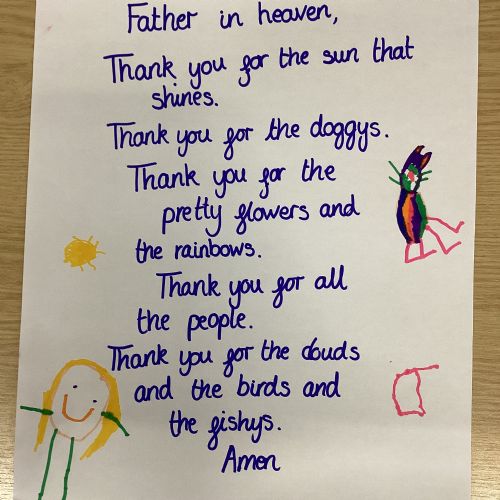 Father in heaven,
Thank you for the sun that
shines.
Thank you for the doggys.
Thank you for the
pretty flowers and
the rainbows.
Thank you for all
the people.
Thank you for the clouds
and the birds and
the fishys.
Amen